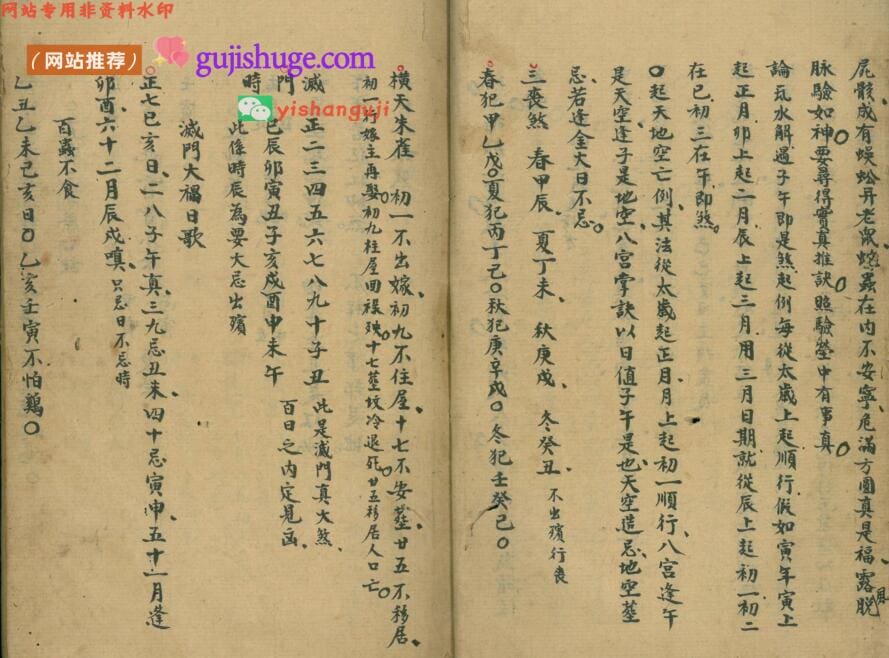 网站专用非资料水印
（网站推荐）
gujishuge.com
yishanguji
屍骸成有蜈蚣丹老鼠蛇蟲在内不安寧危滿方圓真是福露脱
脉驗如神要尋得實真推訣照驗塋中有事真
論瓦水解過子午即是煞起例每從太歲上起順行假如寅年寅上
起正月卯上起二月辰上起三月用三月日期就從辰上起初一初二
在巳初三在午即煞
起天地空亡例其法從太歲起正月月上起初一順行八宫逢午
是天空逢子是地空八宫掌訣以日值子午是也天空造忌地空塟
忌若逢金大日不忌
三喪煞 春甲辰 夏丁未 秋庚戌 冬癸丑 不出殯行喪
春犯甲乙戊〇夏犯丙丁己〇秋犯庚辛戌〇冬犯壬癸己〇
横天朱雀 初一不出嫁初九不住屋十七不安塟廿五不移居
初一行嫁主再娶初九柱屋回禄殃十七塟坟冷退死廿五移居人口亡
滅 正二三四五六七八九十子丑 此是滅門真大煞
門 巳辰卯寅丑子亥戌酉申未午 百日之内定見凶
時 此係時辰為要大忌出殯
滅門大禍日歌
正七巳亥日二八子午真三九忌丑未四十忌寅申五十一月逢
卯酉六十二月辰戌嗔只忌日不忌時
百蟲不食
乙丑乙未己亥日〇乙亥壬寅不怕鷄〇